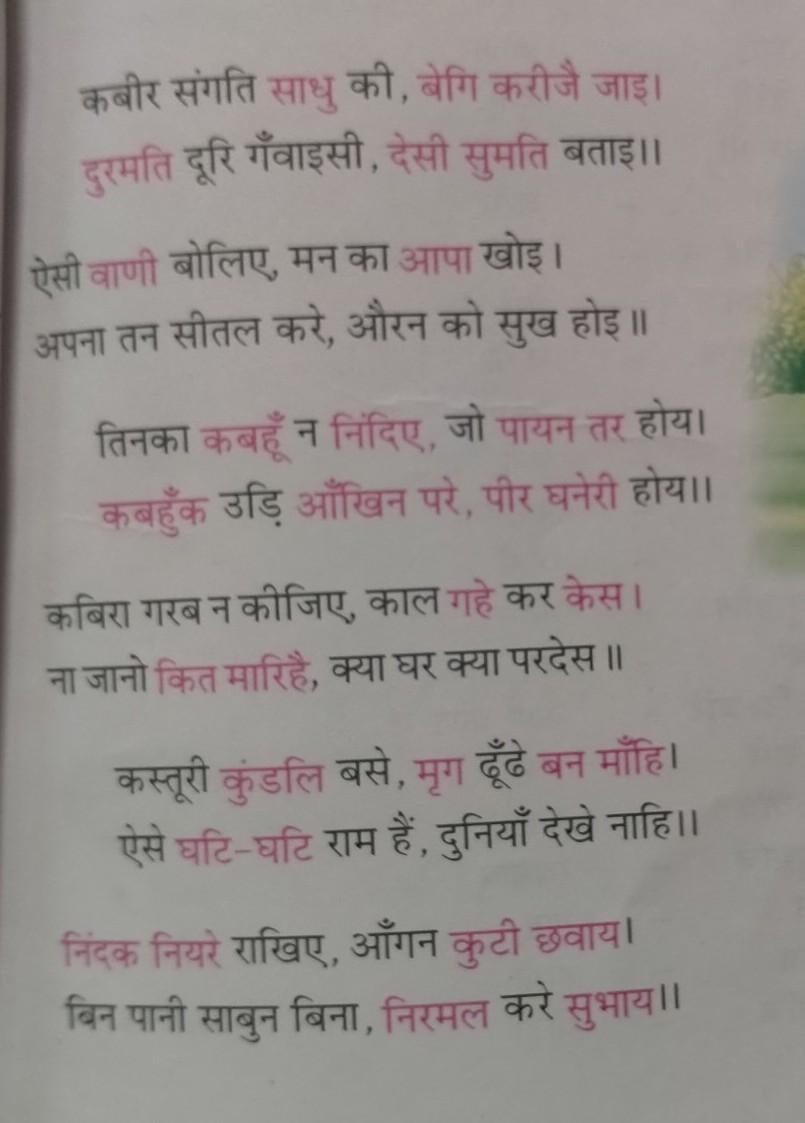 कबीर संगति साधु की, बेगि करीजै जाइ।
दुरमति दूरि गँवाइसी, देसी सुमति बताइ।।
ऐसी वाणी बोलिए, मन का आपा खोइ।
अपना तन सीतल करे, औरन को सुख होइ॥
तिनका कबहूँ न निंदिए, जो पायन तर होय।
कबहुँक उड़ि आँखिन परे, पीर घनेरी होय।।
कबिरा गरब न कीजिए, काल गहे कर केस।
ना जानो कित मारिहै, क्या घर क्या परदेस॥
कस्तूरी कुंडलि बसे, मृग ढूँढे बन माँहि।
ऐसे घटि-घटि राम हैं, दुनियाँ देखे नाहि।।
निंदक नियरे राखिए, आँगन कुटी छवाय।
बिन पानी साबुन बिना, निरमल करे सुभाय।।